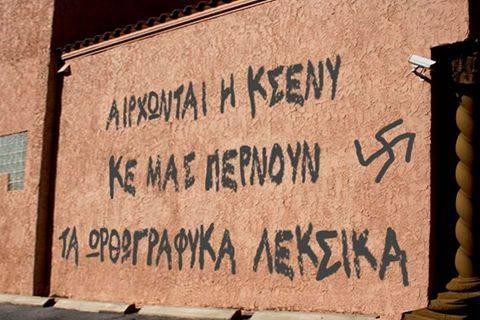 ΑΙΡΧΩΝΤΑΙ Η ΚΣΕΝΥ
ΚΕ ΜΑΣ ΠΕΡΝΟΥΝ
ΤΑ ΩΡΘΩΓΡΑΦΥΚΑ ΛΕΚΣΙΚΑ